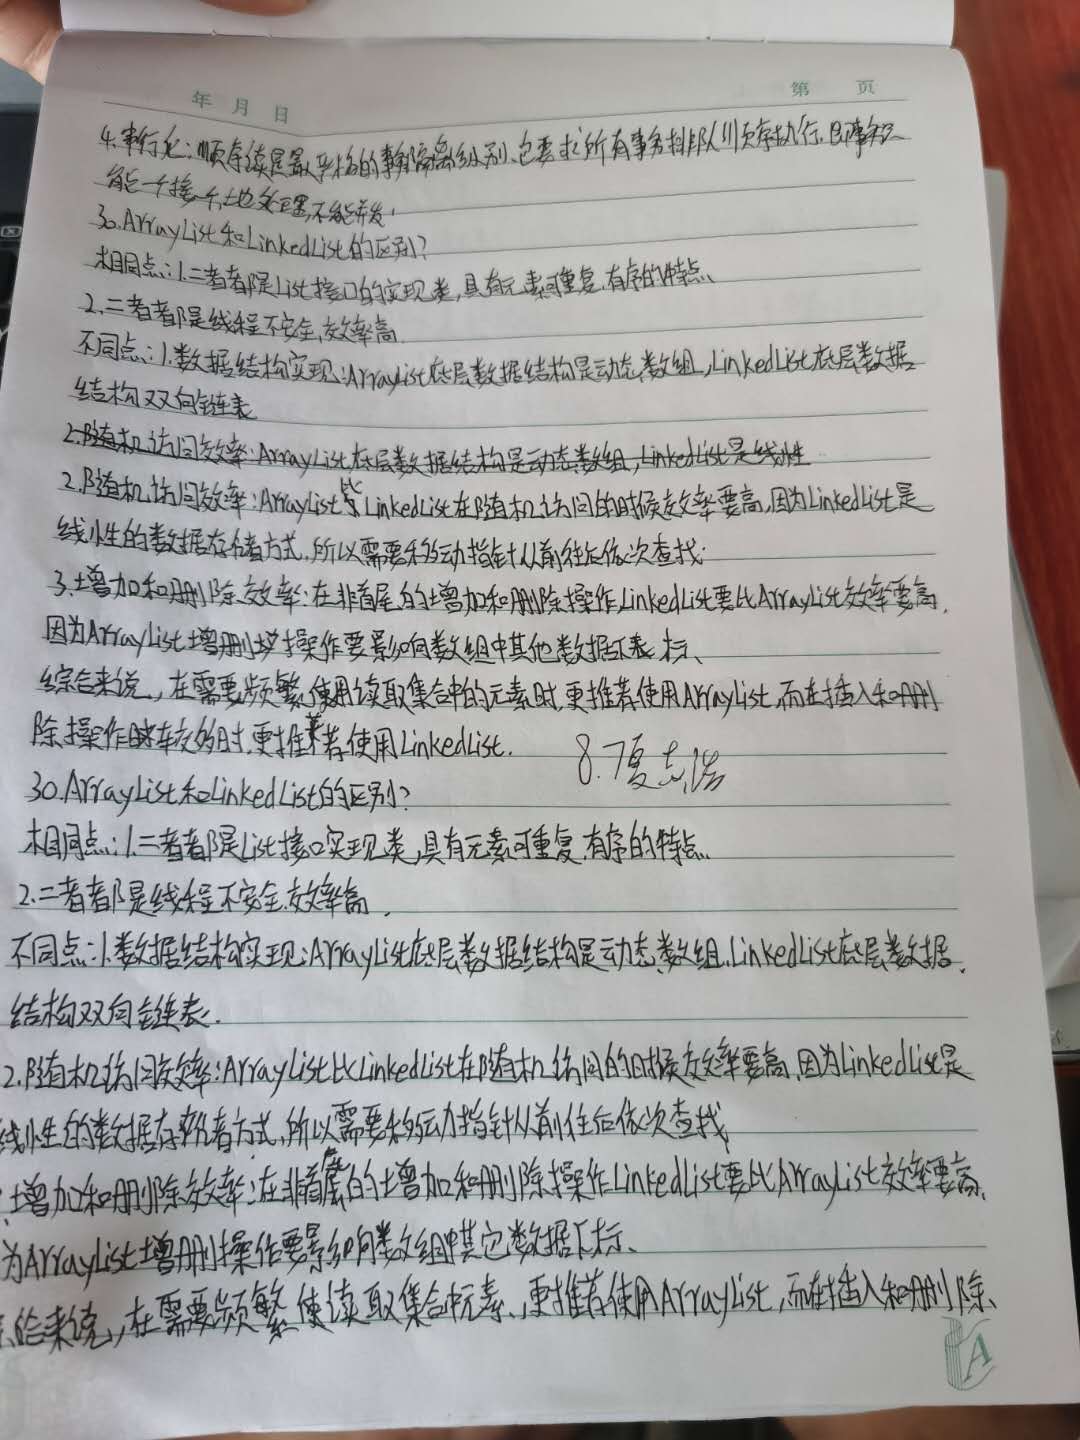 年 月 日
第 页
4.串行化:顺序读是最严格的事务隔离级别、它要求所有事务排队顺序执行.即事务只
能一个接一个地处理,不能并发.
30.ArrayList和LinkedList的区别?
相同点:1.二者都是List接口的实现类,具有元素可重复.有序的特点、
2.二者都是线程不安全,效率高.
不同点:1.数据结构实现:ArrayList底层数据结构是动态数组,LinkedList底层数据
结构双向链表
2.随机访问效率:ArrayList底层数据结构是动态数组,LinkedList是线性
2.随机访问效率:ArrayList比LinkedList在随机访问的时候效率要高,因为LinkedList是
线性的数据存储方式.所以需要移动指针从前往后依次查找.
3.增加和删除效率:在非首尾的增加和删除操作,LinkedList要比ArrayList效率要高.
因为ArrayList增删操作要影响数组中其他数据下标、
综合来说,在需要频繁使用读取集合中的元素时.更推荐使用ArrayList,而在插入和删
除操作较多时.更推荐使用LinkedList.
8.7夏志浩
30.ArrayList和LinkedList的区别?
相同点:1.二者都是List接口实现类,具有元素可重复.有序的特点.
2.二者都是线程不安全.效率高.
不同点:1.数据结构实现:ArrayList底层数据结构是动态数组.LinkedList底层数据.
结构双向链表.
2.随机访问效率:ArrayList比LinkedList在随机访问的时候效率要高.因为LinkedList是
线性的数据存储方式,所以需要移动指针从前往后依次查找
增加和删除效率:在非首尾的增加和删除操作LinkedList要比ArrayList效率要高、
为ArrayList增删操作要影响数组中其它数据下标、
来说,在需要频繁使读取集合中元素.,更推荐使用ArrayList,而在插入和删除、
A